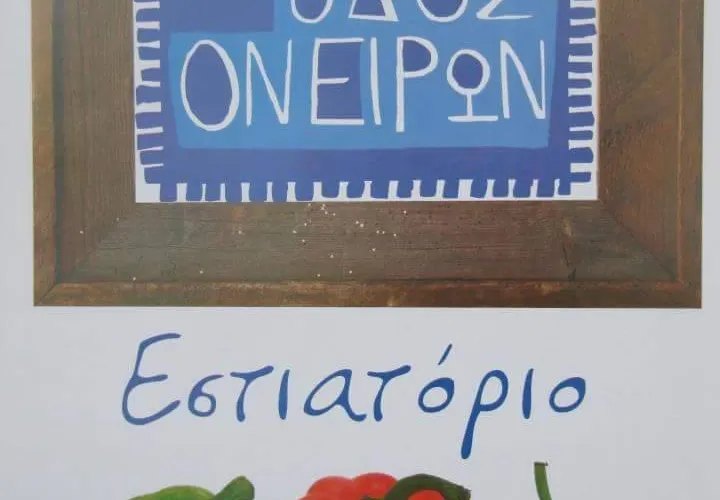 ΟΔΟΣ
ΟΝΕΙΡΩΝ
Εστιατόριο